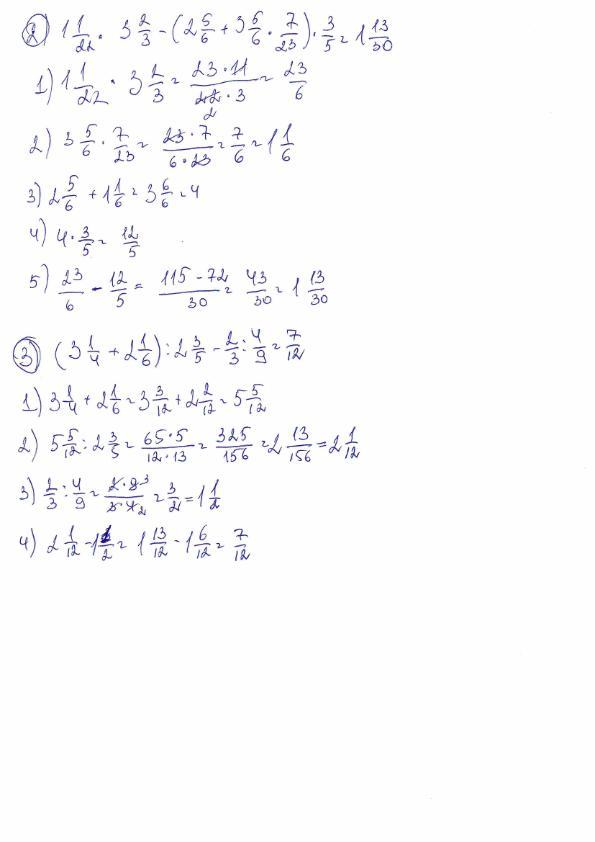 2) 1 1/22 · 3 2/3 - (2 5/6 + 3 5/6 · 7/23) · 3/5 = 1 13/30
1) 1 1/22 · 3 2/3 = 23·11/22·3 = 23/6
2
2) 3 5/6 · 7/23 = 23·7/6·23 = 7/6 = 1 1/6
3) 2 5/6 + 1 1/6 = 3 6/6 = 4
4) 4 · 3/5 = 12/5
5) 23/6 - 12/5 = 115-72/30 = 43/30 = 1 13/30
3) (3 1/4 + 2 1/6) : 2 3/5 - 2/3 : 4/9 = 7/12
1) 3 1/4 + 2 1/6 = 3 3/12 + 2 2/12 = 5 5/12
2) 5 5/12 : 2 3/5 = 65·5/12·13 = 325/156 = 2 13/156 = 2 1/12
3) 2/3 : 4/9 = 2·9 3/3·4 2 = 3/2 = 1 1/2
4) 2 1/12 - 1 1/2 = 1 13/12 - 1 6/12 = 7/12